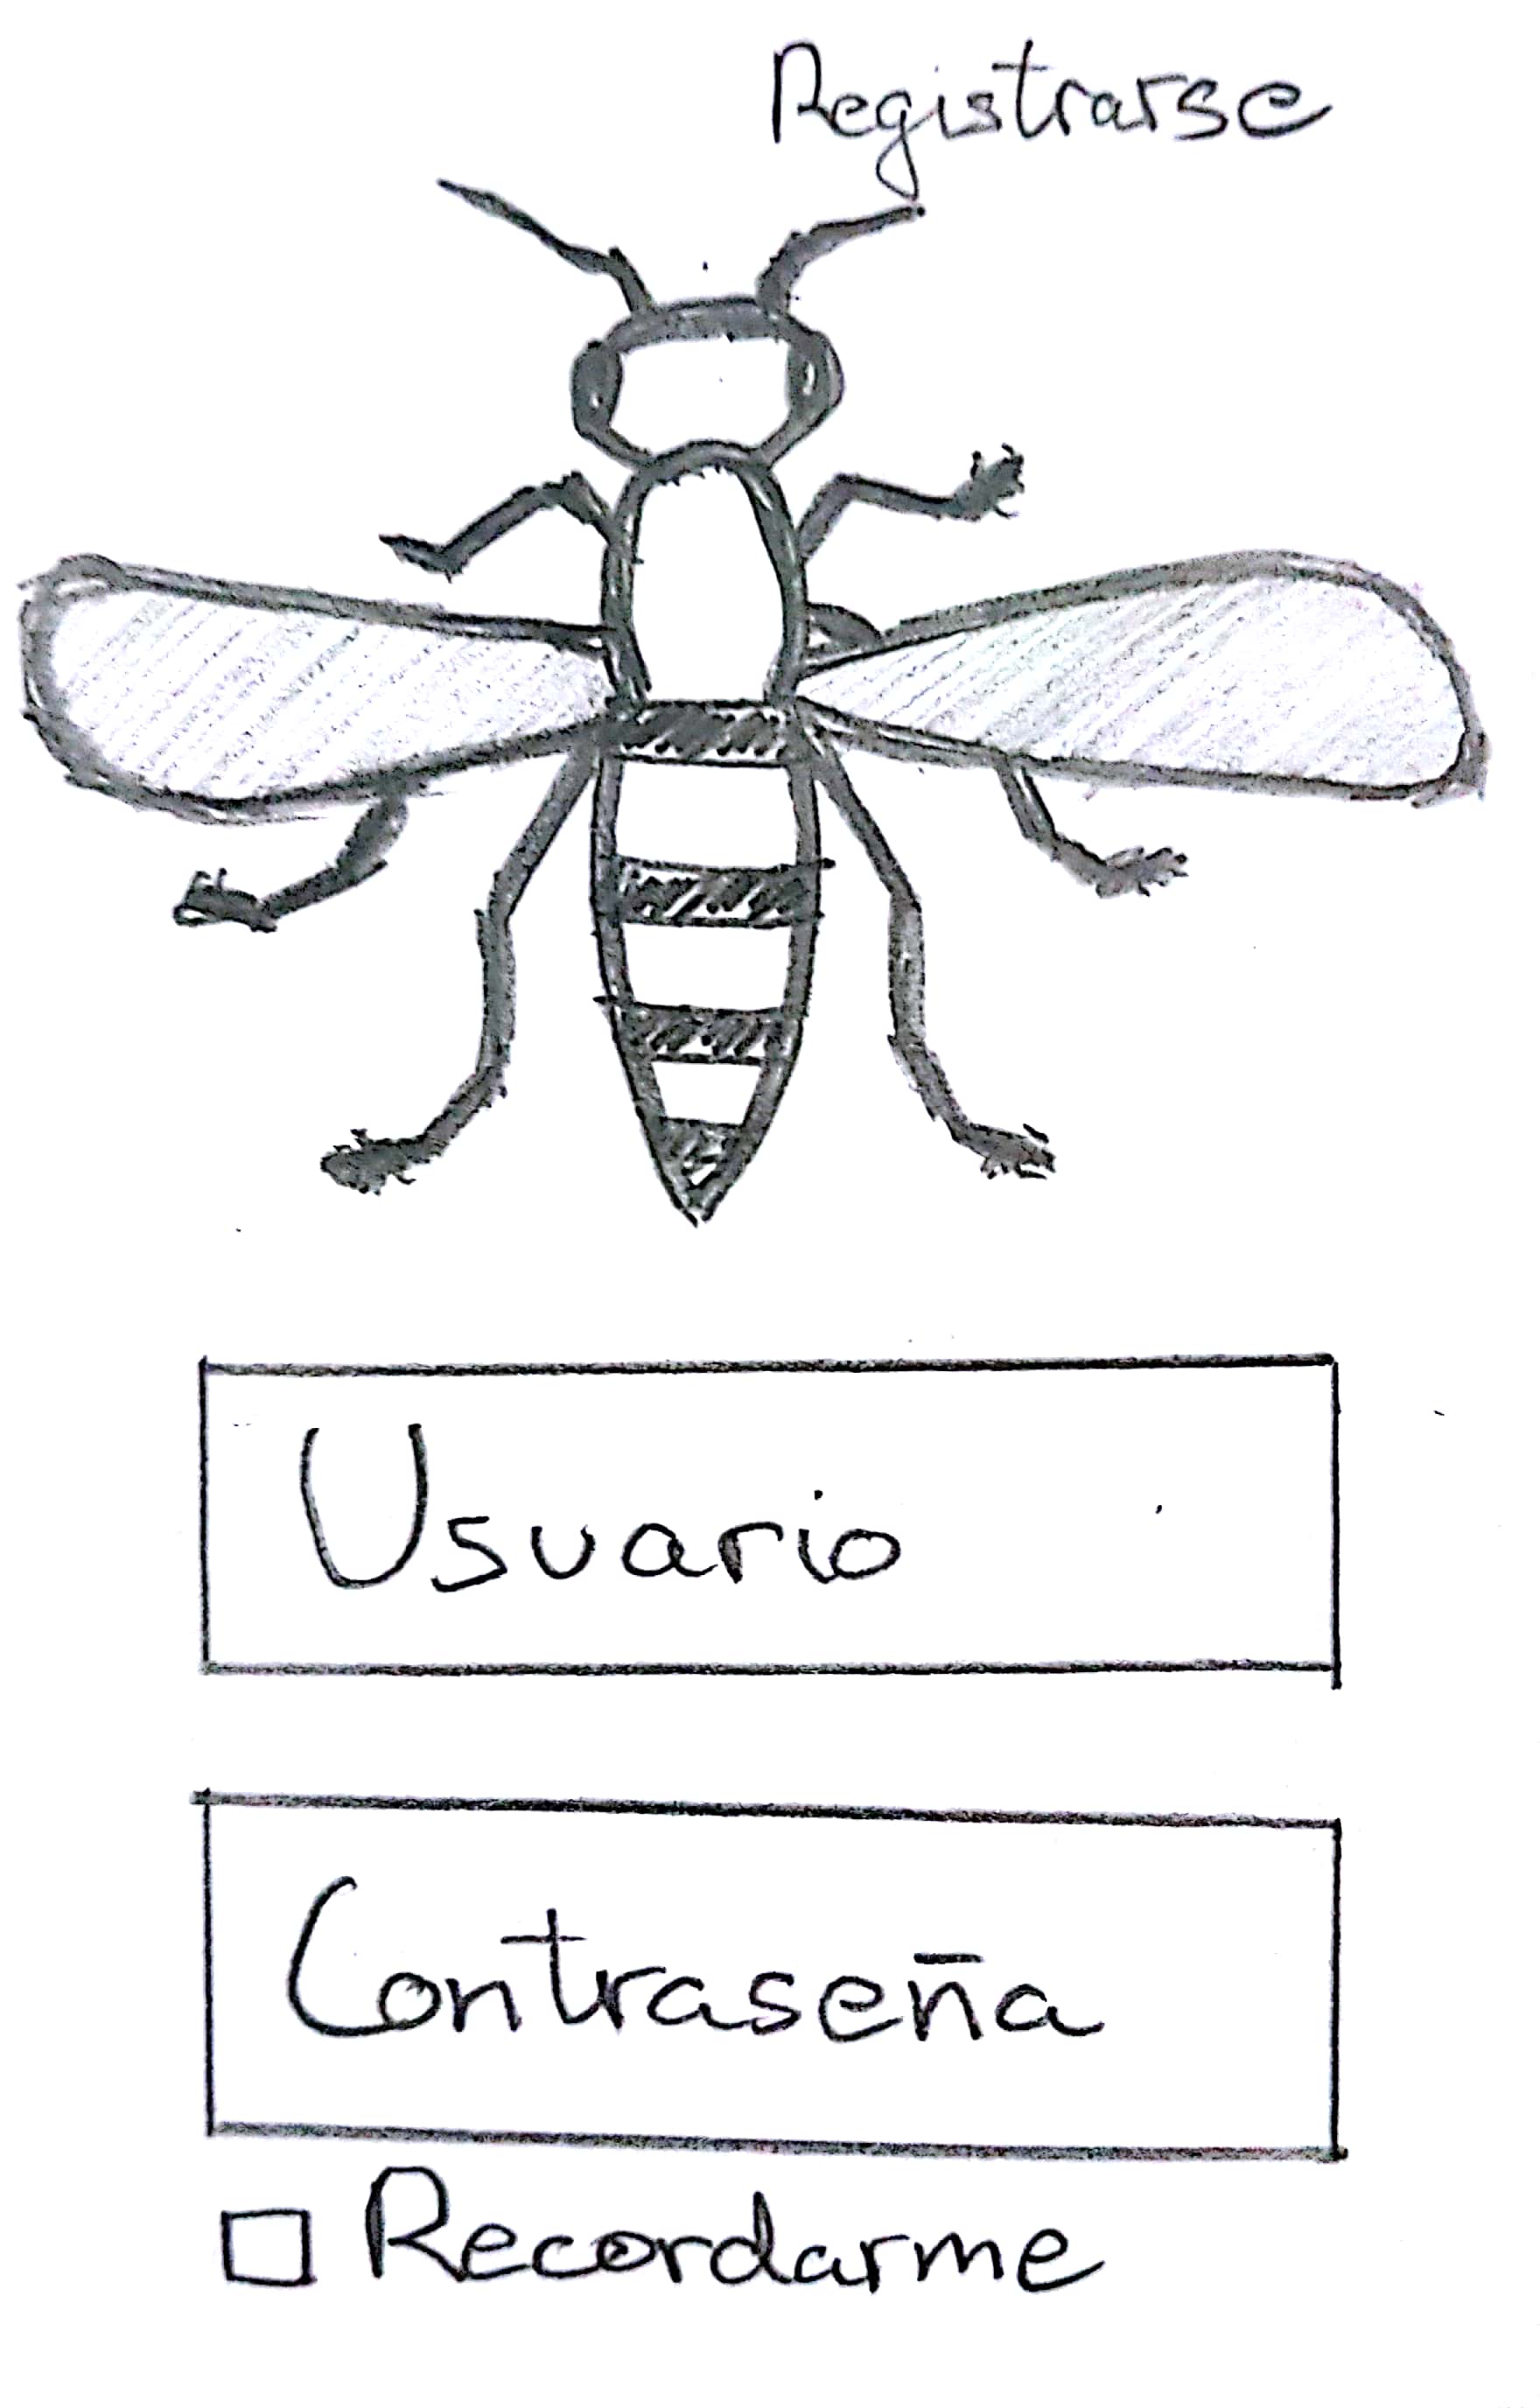 Registrarse
Usuario
Contraseña
Recordarme